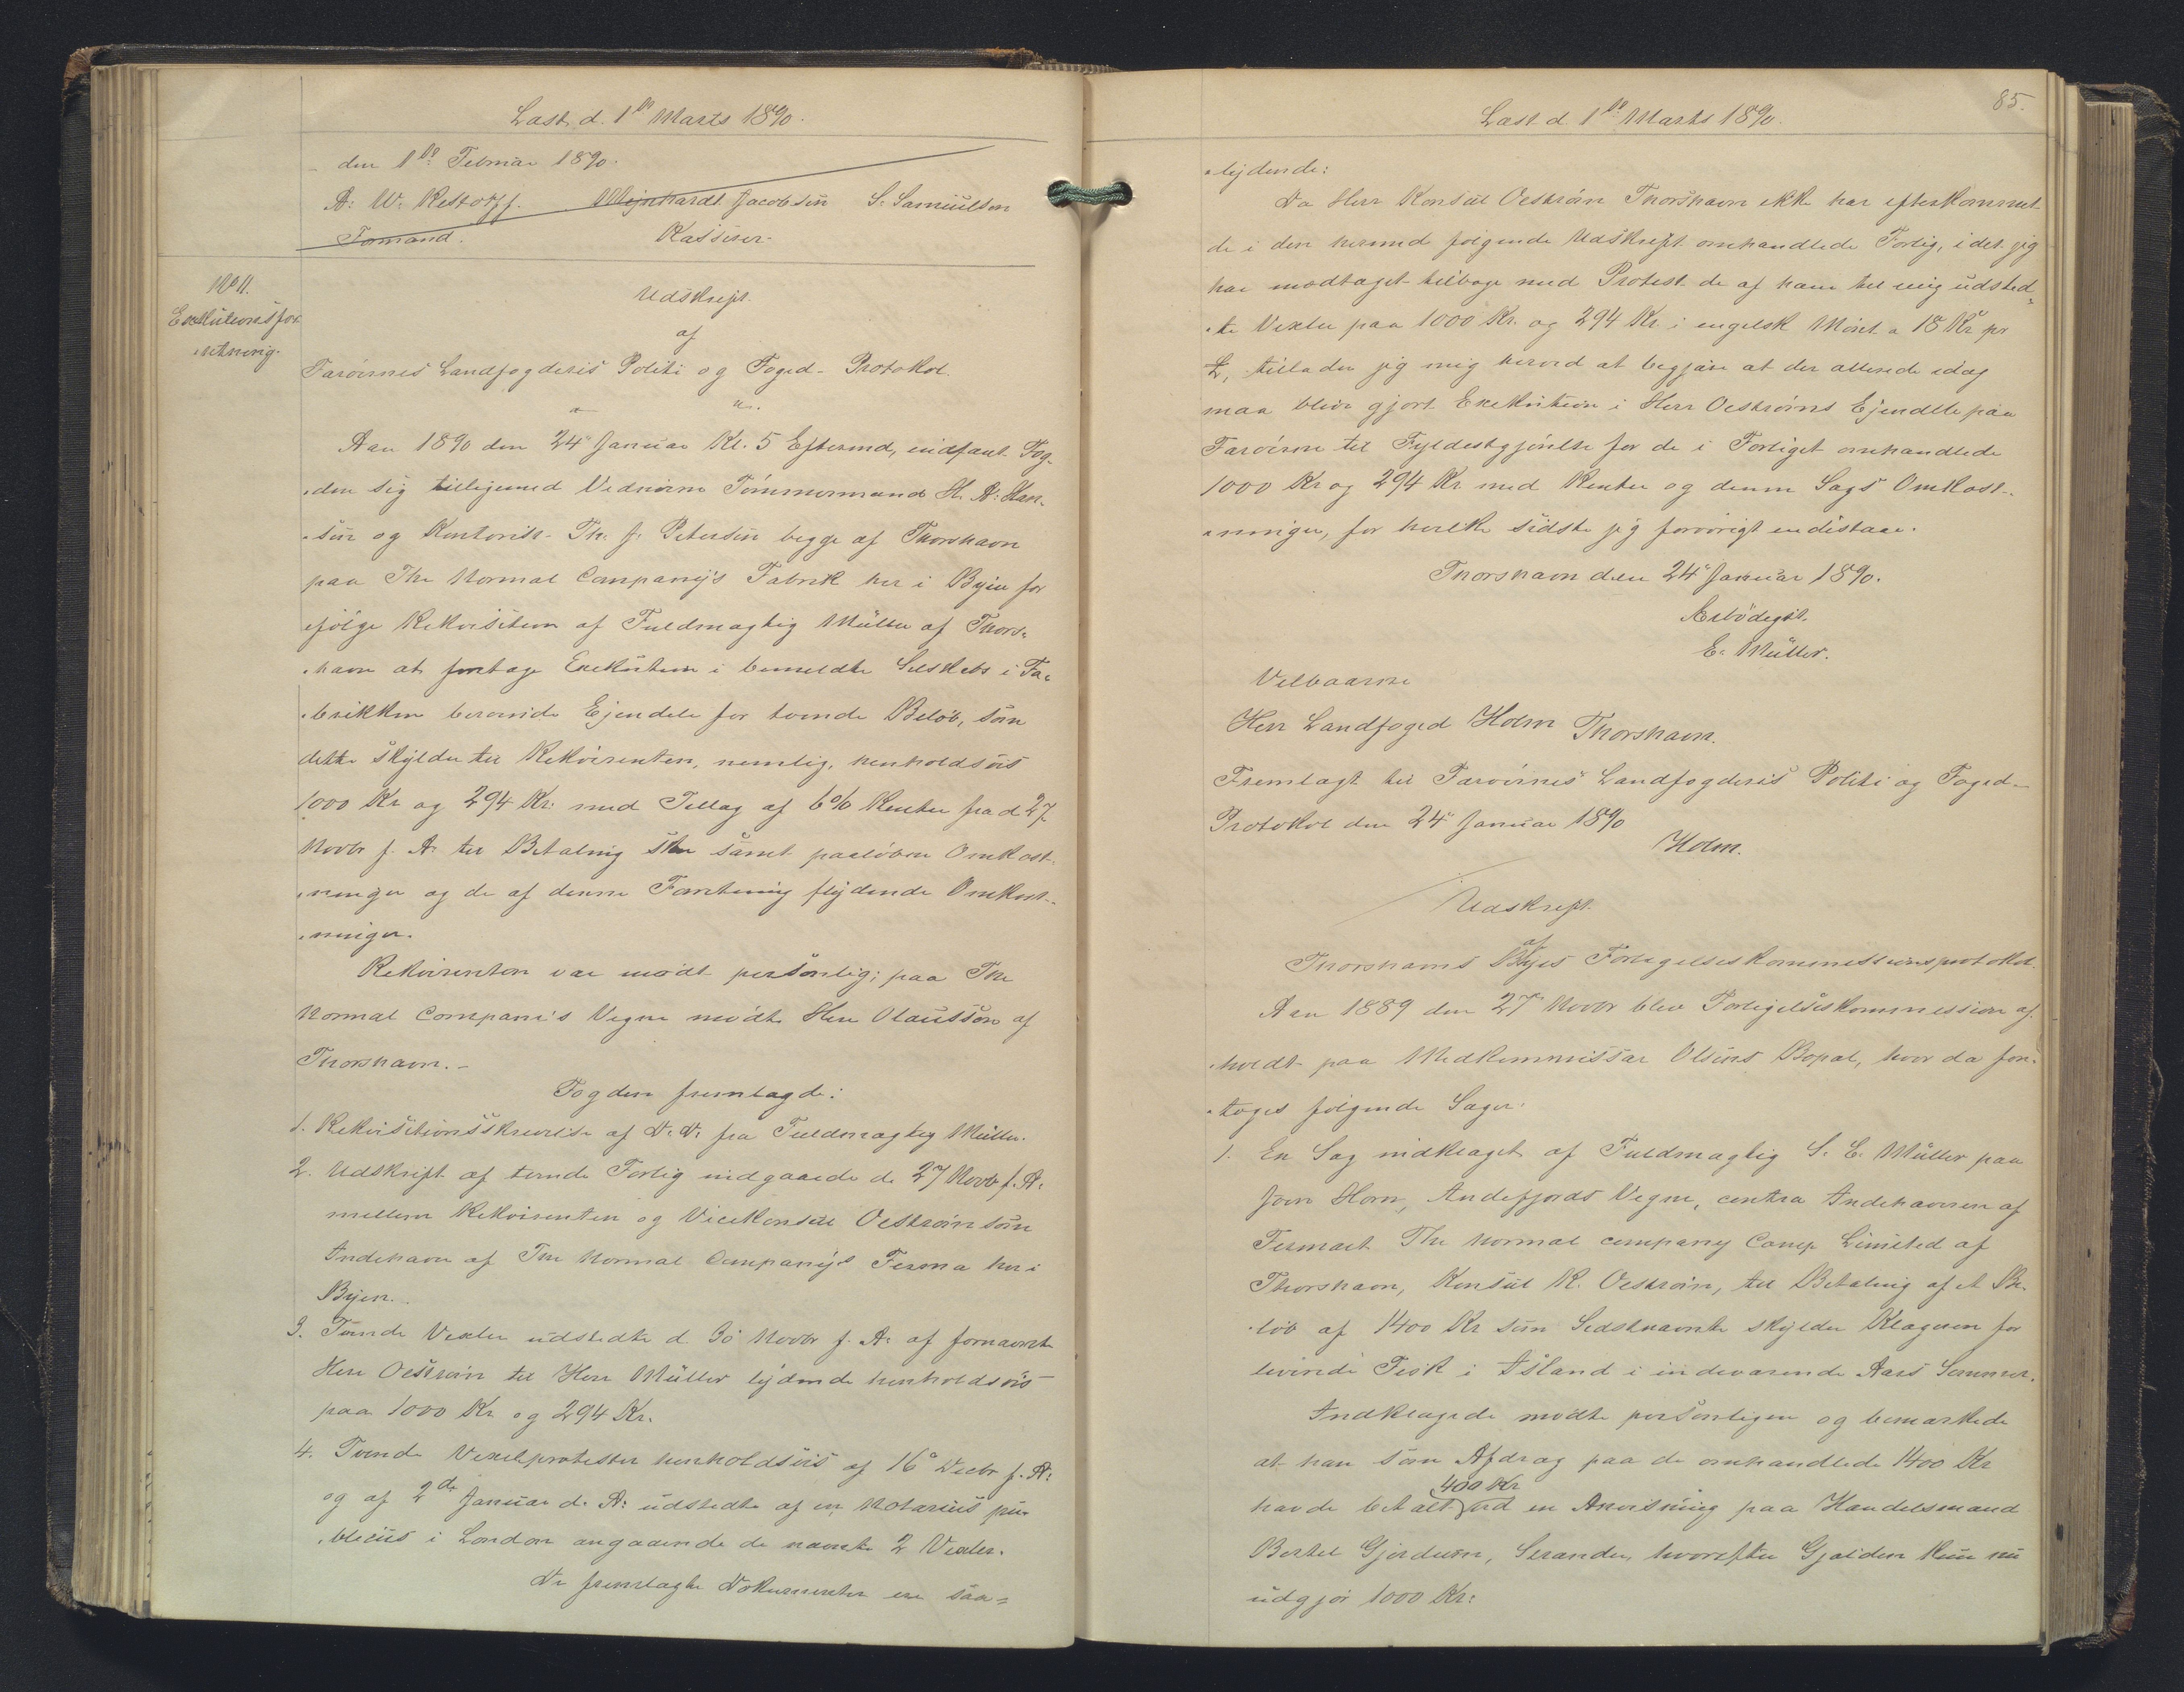 Læst d. 1ste Marts 1890.
den 1ste Februar 1890.
A. W. Restorff. Mejnhardt Jacobsen S. Samuelsen
Formand. Kasserer.
No 11.
Exekutionsfor
retning.
Udskrift
af
Færöernes Landfogderis Politi og Foged-Protokol.
Aar 1890 den 24de Januar Kl. 5 Eftermd, indfant Fog-
den sig tilligemed Vidnerne Tömmermand H. A. Han-
sen og Kontorist Th. J. Petersen begge af Thorshavn
paa The Normal Company's Fabrik her i Byen for
efölge Rekvisition af Fuldmægtig Müller af Thors-
havn at foretage Exekution i bemeldte Selskabs i Fa-
brikken beroende Ejendele for tvende Belöb, som
dette skylder til Rekvirenten, nemlig, henholdsvis
1000 Kr og 294 Kr. med Tillæg af 6% Renter fra d 27
Novbr f. A. til Betaling sker samt paalöbne Omkost-
ninger og de af denne Forretning flydende Omkost-
ninger.
Rekvirenten var mödt personlig; paa The
Normal Compani's Vegne mödte Herr Olausson af
Thorshavn.-
Fogden fremlagde:
1. Rekvisitionsskrivelse af D. D. fra Fuldmægtig Müller.
2. Udskrift af tvende Forlig indgaaede d. 27 Novb f. A.
mellem Rekvirenten og Vicekonsul Oeström som
Indehaver af The Normal Company's Firma her i
Byen.
3. Tvende Vexler udstedte d. 30 Novbr f. A. af fornævnte
Herr Oeström til Herr Müller lydende henholdsvis
paa 1000 Kr og 294 Kr.
4. Tvende Vexelprotester henholdsvis af 16de Decbr f. A.
og af 2den Januar d. A. udstedte af en Notarius pu-
blicus i London angaaende de nævnte 2 Vexler.
De fremlagte Dokumenter ere saa=
85.
Læst d. 1ste Marts 1890.
lydende:
Da Herr Konsul Oeström Thorshavn ikke har efterkommet
de i den hermed fölgende Udskrift omhandlede Forlig, idet jeg
har modtaget tilbage med Protest de af ham til mig udsted-
te Vexler paa 1000 Kr. og 294 Kr i engelsk Mönt a 18 Kr pr
£, tillader jeg mig herved at begjære at der allerede idag
maa blive gjort Exekution i Herr Oeströms Ejendele paa
Færöerne til Fyldestgjörelse for de i Forliget omhandlede
1000 Kr og 294 Kr med Renter og denne Sags Omkost-
ninger, for hvilke sidste jeg forövrigt indestaar.
Thorshavn den 24de Januar 1890.
Ærbödigst.
E. Müller.
Velbaarne
Herr Landfoged Holm Thorshavn.
Fremlagt til Færöernes Landfogderis Politi og Foged-
Protokol den 24de Januar 1890
Holm.
Udskrift
af
Thorshavns Byes Forligelseskommissionsprotokol.
Aar 1889 den 27de Novbr blev Forligelseskommission af-
holdt paa Medkommissær Olsens Bopæl, hvor da fore-
toges fölgende Sager:
1. En Sag indklaget af Fuldmægtig S. E. Müller paa
Jörn Horn, Andefjords Vegne, contra Indehaveren af
Firmaet The Normal Company Comp Limited af
Thorshavn, Konsul R. Oeström, til Betaling af et Be-
löb af 1400 Kr som Sidstnævnte skylder Klageren for
leveret Fisk i Island i indeværende Aars Sommer.
Indklagede mödte personligen og bemærkede
at han som Afdrag paa de omhandlede 1400 Kr
400 Kr
havde betalt ved en Anvisning paa Handelsmand
Bertel Gjerdum, Strander, hvorefter Gjælden kun nu
udgjör 1000 Kr: